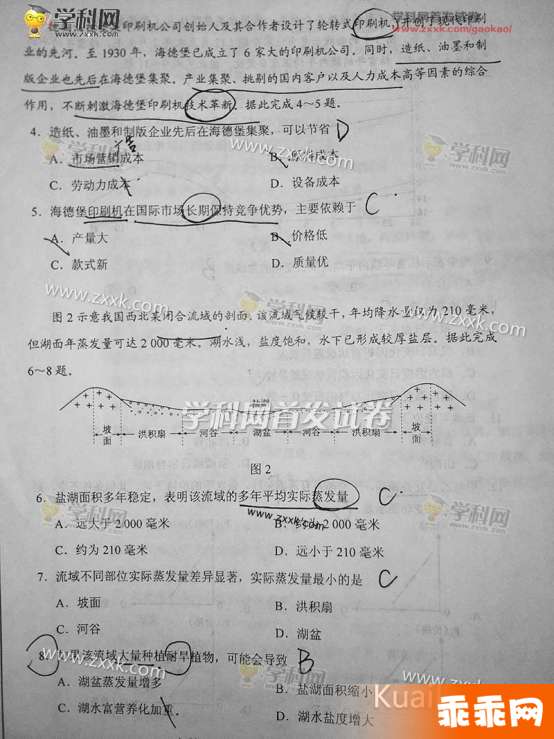 德 印刷机公司创始人及其合作者设计了轮转式印刷机, 开创了现代印刷
业的先河。至 1930 年，海德堡已成立了 6 家大的印刷机公司。同时，造纸、油墨和制
版企业也先后在海德堡集聚。产业集聚、挑剔的国内客户以及人力成本高等因素的综合
作用，不断刺激海德堡印刷机技术革新。据此完成 4～5 题。
4. 造纸、油墨和制版企业先后在海德堡集聚，可以节省 D
A. 市场营销成本 B. 原料成本
C. 劳动力成本 D. 设备成本
5. 海德堡印刷机在国际市场长期保持竞争优势，主要依赖于 C
A. 产量大 B. 价格低
C. 款式新 D. 质量优
图 2 示意我国西北某闭合流域的剖面。该流域气候较干，年均降水量仅为 210 毫米，
但湖面年蒸发量可达 2 000 毫米。湖水浅，盐度饱和，水下已形成较厚盐层。据此完成
6～8 题。
盐湖
坡面 洪积扇 河谷 湖盆 河谷 洪积扇 坡面
图 2
6. 盐湖面积多年稳定，表明该流域的多年平均实际蒸发量 C
A. 远大于 2 000 毫米 B. 约为 2 000 毫米
C. 约为 210 毫米 D. 远小于 210 毫米
7. 流域不同部位实际蒸发量差异显著，实际蒸发量最小的是 C
A. 坡面 B. 洪积扇
C. 河谷 D. 湖盆
8. 如果该流域大量种植耐旱植物，可能会导致 B
A. 湖盆蒸发量增多 B. 盐湖面积缩小
C. 湖水富营养化加重 D. 湖水盐度增大
学科网
www.zxxk.com
学科网首发试卷
学科网首发gaokao
Kuai
乖乖网